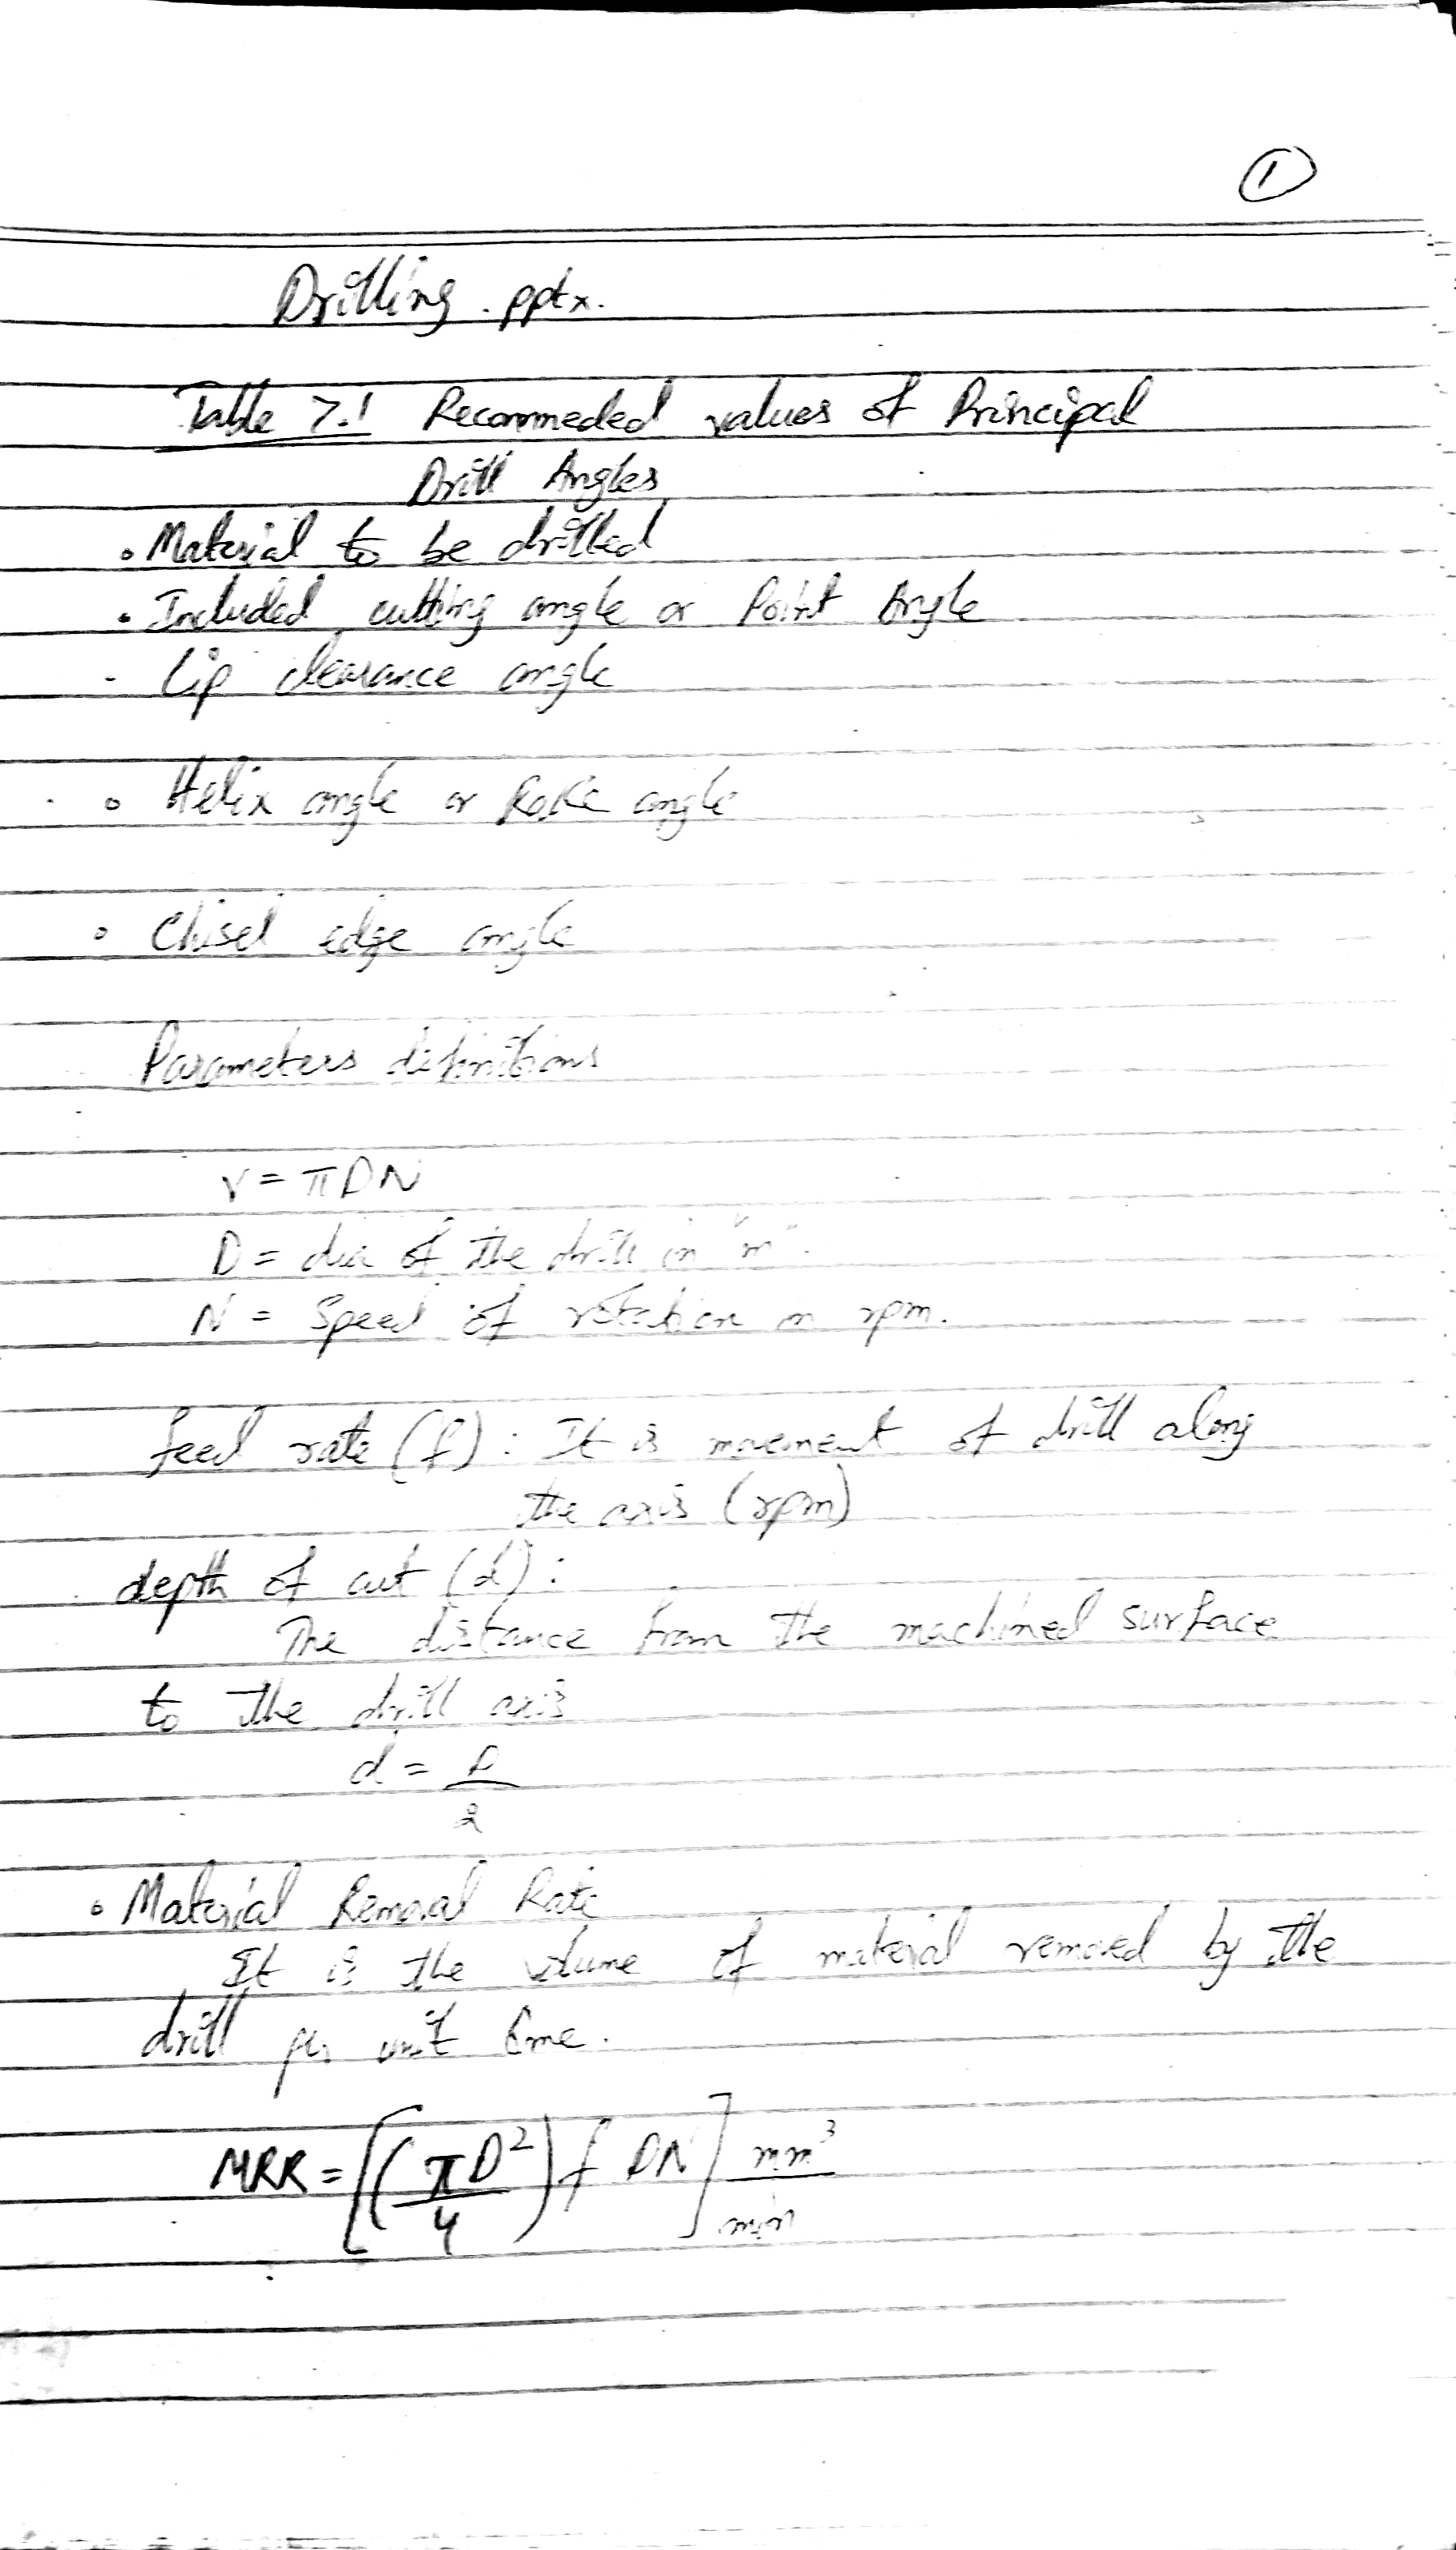 1
Drilling.pptx.
Table 7.1 Recommeded values of Principal
Drill Angles
• Material to be drilled
• Included cutting angle or Point Angle
- Lip clearance angle
• Helix angle or Rake angle
• Chisel edge angle
Parameters definitions
V = πDN
D = dia of the drill in "m".
N = Speed of rotation in rpm.
feed rate (f): It is movement of drill along
the axis (rpm)
depth of cut (d):
The distance from the machined surface
to the drill axis
d = D
2
• Material Removal Rate
It is the volume of material removed by the
drill per unit time.
MRR = [(πD²/4) f DN] mm³/min